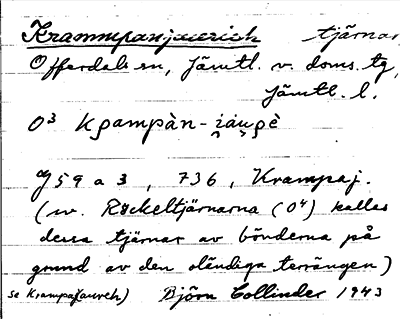 Krampanjaureh tjärnar
Offerdals sn, Jämtl. v. doms. tg,
Jämtl. l.
O³ kρampàn-i̯äu̯ρè
J 59 a 3, 736, Krampaj.
(w. Röckeltjärnarna (O⁴) kallas
dessa tjärnar av bönderna på
grund av den oländiga terrängen)
se Krampajaureh) Björn Collinder 1943